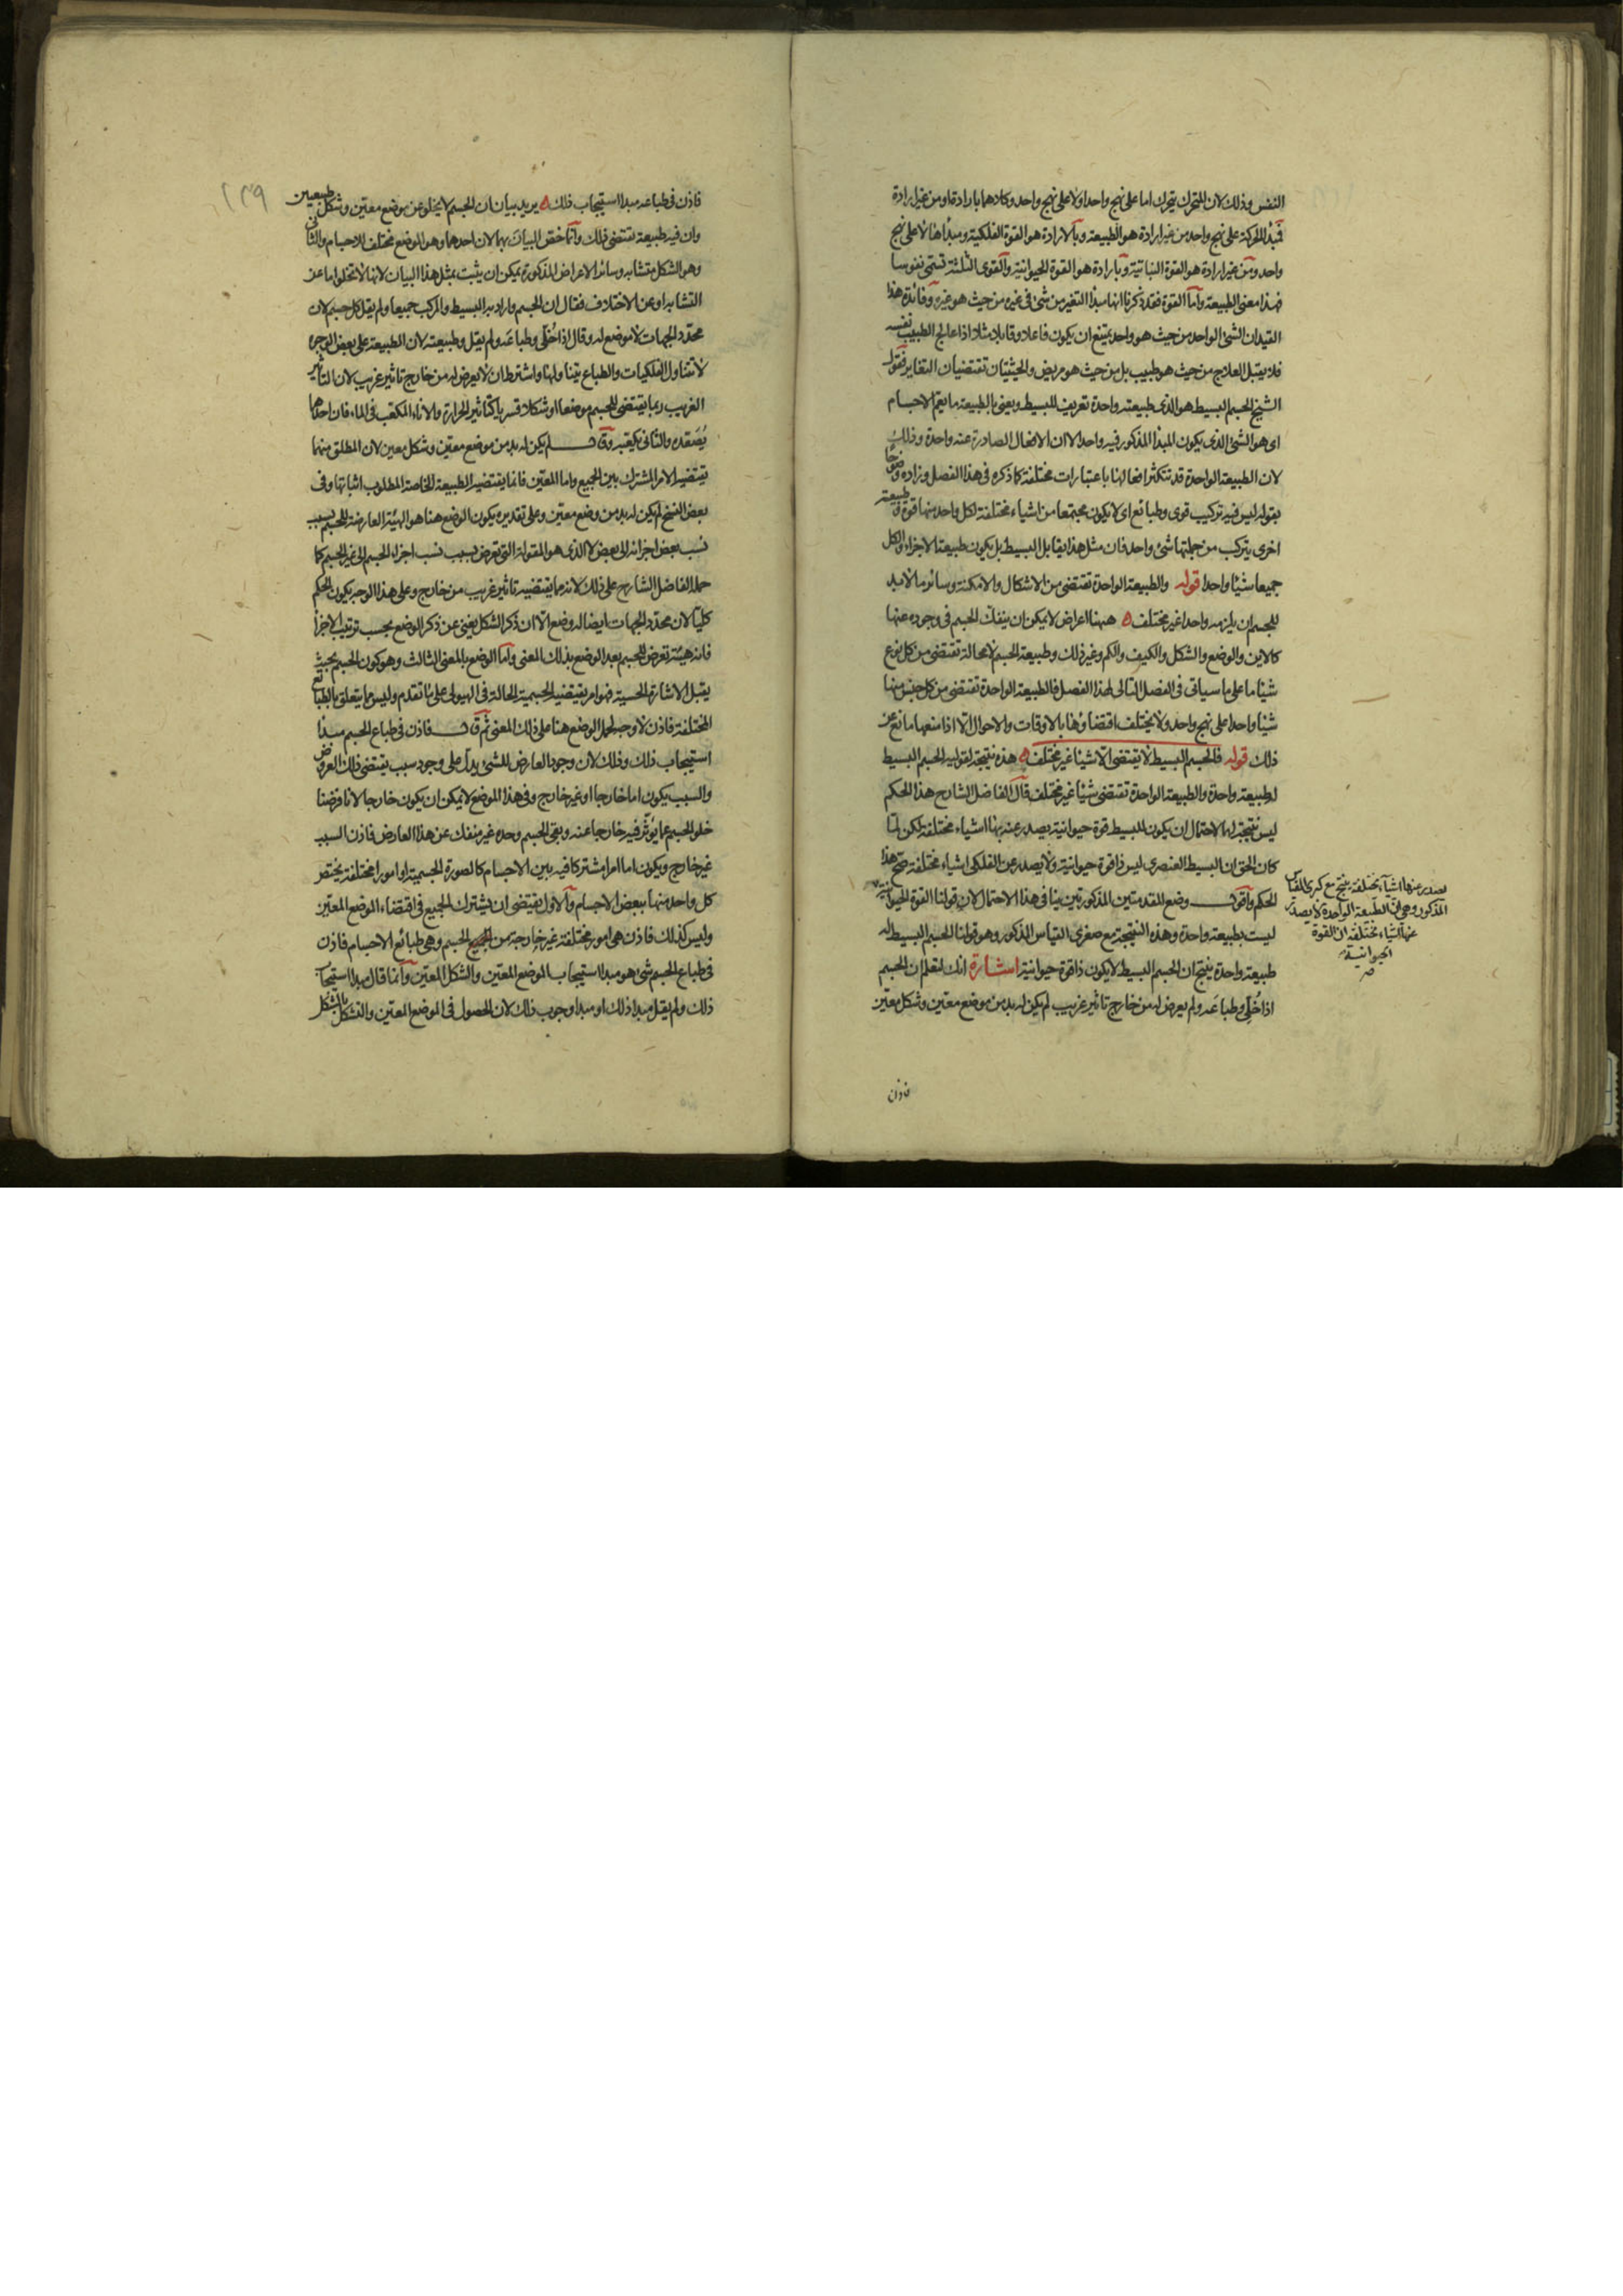 النفس وذلك لان المتحرك يتحرك اما على نهج واحد او لا على نهج واحد وكلاهما بارادة او من غير ارادة
فمبدأ الحركة على نهج واحد من غير ارادة هو الطبيعة وبالارادة هو القوة الفلكية ومبدأها لا على نهج
واحد ومن غير ارادة هو القوة النباتية وبارادة هو القوة الحيوانية والقوى الثلثة تسمى نفوسا
فهذا معنى الطبيعة واما القوة فقد ذكرنا انها مبدأ التغير من شئ فى غيره من حيث هو غيره وفائدة هذا
القيد ان الشئ الواحد من حيث هو واحد يمتنع ان يكون فاعلا وقابلا مثلا اذا عالج الطبيب نفسه
فلا يقبل العلاج من حيث هو طبيب بل من حيث هو مريض والحيثيتان تقتضيان التغاير فقول
الشيخ الجسم البسيط هو الذى طبيعته واحدة تعريف للبسيط ويعنى بالطبيعة ما يعم الاجسام
اى هو الشئ الذى يكون المبدأ المذكور فيه واحدا لا ان الافعال الصادرة عنه واحدة وذلك
لان الطبيعة الواحدة قد تتكثر افعالها باعتبارات مختلفة كما ذكره فى هذا الفصل وزاده وضوحا
بقوله ليس فيه تركيب قوى وطبائع اى لا يكون مجتمعا من اشياء مختلفة لكل واحد منها قوة وطبيعة
اخرى يتركب من جملتها شئ واحد فان مثل هذا يقابل البسيط بل يكون طبيعة الاجزاء والكل
جميعا شيئا واحدا قوله والطبيعة الواحدة تقتضى من الاشكال والامكنة وسائر ما لا بد
للجسم ان يلزمه واحدا غير مختلف ههنا اعراض لا يمكن ان ينفك الجسم فى وجوده عنها
كالاين والوضع والشكل والكيف والكم وغير ذلك وطبيعة الجسم لا محالة تقتضى من كل نوع
شيئا ما على ما سياتى فى الفصل التالى لهذا الفصل فالطبيعة الواحدة تقتضى من كل جنس منها
شيئا واحدا على نهج واحد ولا يختلف اقتضاؤها بالاوقات والاحوال الا اذا منعها مانع عن
ذلك قوله فالجسم البسيط لا يقتضى الا شيئا غير مختلف هذه نتيجة لقوليه الجسم البسيط
له طبيعة واحدة والطبيعة الواحدة تقتضى شيئا غير مختلف قال الفاضل الشارح هذا الحكم
ليس نتيجة لهما لاحتمال ان يكون للبسيط قوة حيوانية يصدر عنه بها اشياء مختلفة لكن لما
كان الحق ان البسيط العنصرى ليس ذا قوة حيوانية ولا يصدر عن الفلكى اشياء مختلفة صح هذا
الحكم واقول وضع المقدمتين المذكورتين ينافى هذا الاحتمال لان قولنا القوة الحيوانية
ليست بطبيعة واحدة وهذه النتيجة مع صغرى القياس المذكور وهو قولنا الجسم البسيط له
طبيعة واحدة ينتج ان الجسم البسيط لا يكون ذا قوة حيوانية اشارة انك لتعلم ان الجسم
اذا خُلّى وطباعَه ولم يعرض له من خارج تاثير غريب لم يكن له بد من موضع معيّن وشكل معيّن
فاذن
يصدر عنها اشياء مختلفة ينتج مع كبرى القياس
المذكور وهى ان الطبيعة الواحدة لا يصدر
عنها اشياء مختلفة ان القوة
الحيوانية
صح
١٣٩
فاذن فى طباعه مبدأ استيجاب ذلك يريد بيان ان الجسم لا يخلو عن موضع معيّن وشكل طبيعيين
وان فيه طبيعة تقتضى ذلك وانما خصّ البيان بهما لان احدهما وهو الموضع مختلف للاجسام والثانى
وهو الشكل متشابه وسائر الاعراض المذكورة يمكن ان يثبت بمثل هذا البيان لانها لا تخلو اما عن
التشابه او عن الاختلاف فقال ان الجسم واراد به البسيط والمركب جميعا ولم يقل كل جسم لان
محدّد الجهات لا موضع له وقال اذا خُلّى وطباعَه ولم يقل وطبيعته لان الطبيعة على بعض الوجوه
لا تتناول الفلكيات والطباع يتناولها واشترط ان لا يعرض له من خارج تاثير غريب لان التاثير
الغريب ربما يقتضى للجسم موضعا او شكلا قسريا كتاثير الحرارة والاناء المكعب فى الماء فان احدهما
يُصَعّده والثانى يكعبه وقال لم يكن له بد من موضع معيّن وشكل معين لان المطلق منهما
يقتضيه الامر المشترك بين الجميع واما المعيّن فانما يقتضيه الطبيعة الخاصة المطلوب اثباتها وفى
بعض النسخ لم يكن له بد من وضع معين وعلى تقديره يكون الوضع هنا هو الهيئة العارضة للجسم بسبب
نسب بعض اجزائه الى بعض لا الذى هو المقولة التى تعرض بسبب نسب اجزاء الجسم الى غير الجسم كما
حمله الفاضل الشارح على ذلك لانه مما يقتضيه تاثير غريب من خارج وعلى هذا الوجه يكون الحكم
كليّا لان محدّد الجهات ايضا له وضع الا ان ذكر الشكل يغنى عن ذكر الوضع بحسب ترتيب الاجزا
فانه هيئة تعرض للجسم بعد الوضع بذلك المعنى واما الوضع بالمعنى الثالث وهو كون الجسم بحيث
يقبل الاشارة الحسية فهو امر يقتضيه الجسمية الحالة فى الهيولى على ما تقدم وليس مما يتعلق بالطبائع
المختلفة فاذن لا وجه لحمل الوضع هنا على ذلك المعنى ثم قال فاذن فى طباع الجسم مبدأ
استيجاب ذلك وذلك لان وجود العارض للشئ يدل على وجود سبب يقتضى ذلك العروض
والسبب يكون اما خارجا او غير خارج وفى هذا الموضع لا يمكن ان يكون خارجا لانا فرضنا
خلو الجسم عما يؤثر فيه خارجا عنه وبقى الجسم وحده غير منفك عن هذا العارض فاذن السبب
غير خارج ويكون اما امرا مشتركا فيه بين الاجسام كالصورة الجسمية او امورا مختلفة يختص
كل واحد منها ببعض الاجسام والاول يقتضى ان يشترك الجميع فى اقتضاء الموضع المعيّن
وليس كذلك فاذن هى امور مختلفة غير خارجة من الجسم وهى طبائع الاجسام فاذن
فى طباع الجسم شئ هو مبدأ استيجاب الموضع المعيّن والشكل المعيّن وانما قال مبدأ استيجاب
ذلك ولم يقل مبدأ ذلك او مبدأ وجوب ذلك لان الحصول فى الموضع المعيّن والتشكل بالشكل